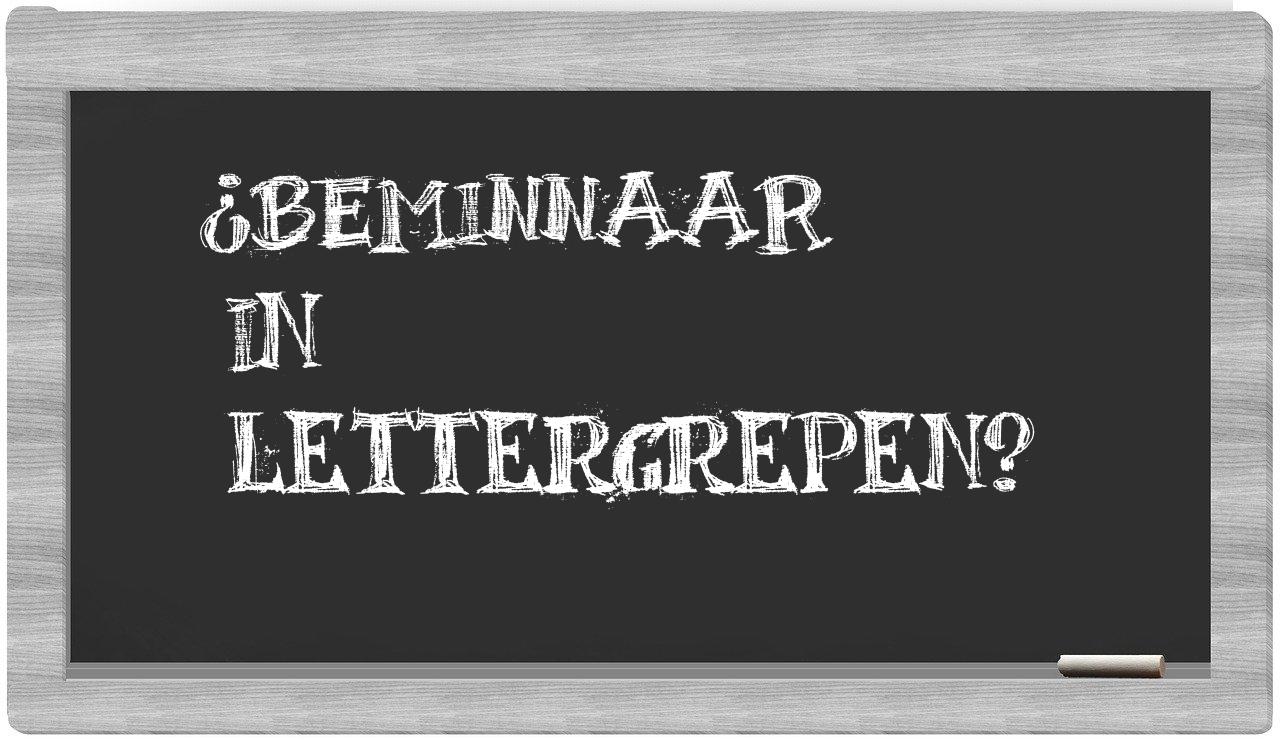 ¿BEMINNAAR
IN
LETTERGREPEN?